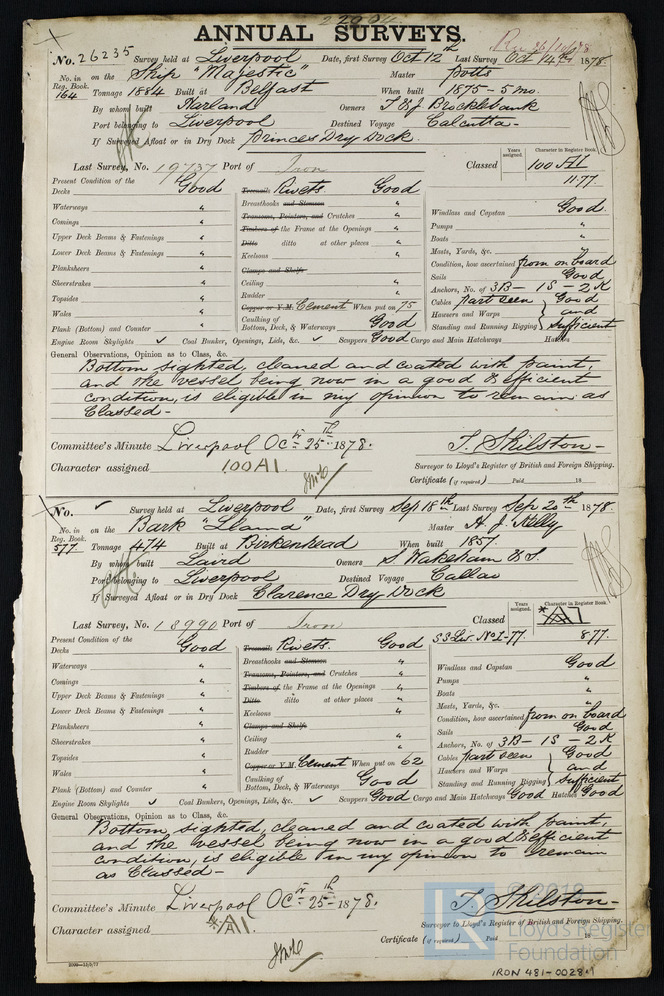 ANNUAL SURVEYS.
No. 26235 Survey held at Liverpool Date, first Survey Oct 12th Last Survey Oct 14th 1878.
No. in Reg. Book. 164 on the Ship "Majestic" Master Potts
Tonnage 1884 Built at Belfast When built 1875 - 5 mo.
By whom built Harland Owners T & J Brocklebank
Port belonging to Liverpool Destined Voyage Calcutta -
If Surveyed Afloat or in Dry Dock Princes Dry Dock.
Years assigned. Character in Register Book.
Last Survey, No. 19737 Port of Iron Classed 100 A1
11.77.
Present Condition of the
Decks Good
Waterways "
Comings "
Upper Deck Beams & Fastenings "
Lower Deck Beams & Fastenings "
Planksheers "
Sheerstrakes "
Topsides "
Wales "
Plank (Bottom) and Counter "
Treenails Rivets. Good
Breasthooks and Stemson "
Transoms, Pointers, and Crutches "
Timbers of the Frame at the Openings "
Ditto ditto at other places "
Keelsons "
Clamps and Shelfs
Ceiling "
Rudder "
Copper or Y.M. Cement When put on 75
Caulking of Bottom, Deck, & Waterways Good
Windlass and Capstan Good.
Pumps "
Boats "
Masts, Yards, &c. "
Condition, how ascertained from on board
Sails Good
Anchors, No. of 3B - 1S - 2K
Cables part seen Good
Hawsers and Warps and
Standing and Running Rigging sufficient
Engine Room Skylights ✓ Coal Bunker, Openings, Lids, &c. ✓ Scuppers Good Cargo and Main Hatchways Hatches
General Observations, Opinion as to Class, &c.
Bottom sighted, cleaned and coated with paint,
and the vessel being now in a good & efficient
condition, is eligible in my opinion to remain as
Classed -
Committee's Minute Liverpool Oct 25th 1878.
Character assigned 100A1.
T. Shilston -
Surveyor to Lloyd's Register of British and Foreign Shipping.
Certificate (if required) Paid 18
No. ✓ Survey held at Liverpool Date, first Survey Sep 18th Last Survey Sep 20th 1878.
No. in Reg. Book. 577 on the Bark "Lland" Master H. J. Kelly
Tonnage 474 Built at Birkenhead When built 1857.
By whom built Laird Owners S. Wakeham & S.
Port belonging to Liverpool Destined Voyage Callao
If Surveyed Afloat or in Dry Dock Clarence Dry Dock
Years assigned. Character in Register Book.
Last Survey, No. 18990 Port of Iron Classed A1
SS Liv. No1-77. 8.77.
Present Condition of the
Decks Good
Waterways "
Comings "
Upper Deck Beams & Fastenings "
Lower Deck Beams & Fastenings "
Planksheers "
Sheerstrakes "
Topsides "
Wales "
Plank (Bottom) and Counter "
Treenails Rivets. Good
Breasthooks and Stemson "
Transoms, Pointers, and Crutches "
Timbers of the Frame at the Openings "
Ditto ditto at other places "
Keelsons "
Clamps and Shelfs
Ceiling "
Rudder "
Copper or Y.M. Cement When put on 62
Caulking of Bottom, Deck, & Waterways Good
Windlass and Capstan Good
Pumps "
Boats "
Masts, Yards, &c. "
Condition, how ascertained from on board
Sails Good
Anchors, No. of 3B - 1S - 2K
Cables part seen Good
Hawsers and Warps and
Standing and Running Rigging sufficient
Engine Room Skylights ✓ Coal Bunkers, Openings, Lids, &c. ✓ Scuppers Good Cargo and Main Hatchways Good Hatches Good
General Observations, Opinion as to Class, &c.
Bottom, sighted, cleaned and coated with paint,
and the vessel being now in a good & efficient
condition, is eligible in my opinion to remain
as Classed -
Committee's Minute Liverpool Oct 25th 1878.
Character assigned A1.
T. Shilston -
Surveyor to Lloyd's Register of British and Foreign Shipping.
Certificate (if required) Paid 18
© 2019
Lloyd's Register
Foundation
IRON 481-0028.1